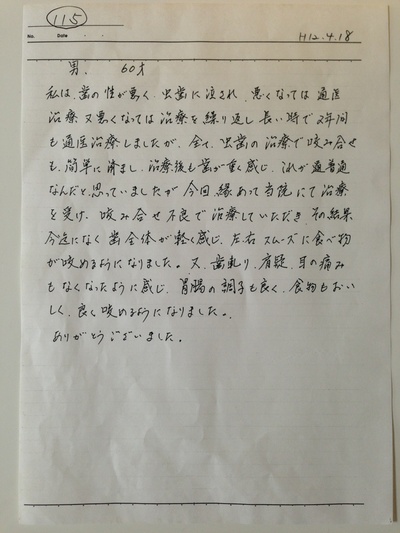 115
No. Date
H12.4.18
男. 60才
私は、歯の性が悪く、虫歯に浸され、悪くなっては通医
治療 又悪くなっては治療を繰り返し長い時で2年間
も通医治療しましたが、全て、虫歯の治療で咬み合せ
も、簡単に済まし、治療後も歯が重く感じ、これが過普通
なんだと思っていましたが今回縁あって当院にて治療
を受け、咬み合せ不良で治療していただき その結果
今迄になく歯全体が軽く感じ、左右スムーズに食べ物
が咬めるようになりました。又、歯軋り、肩疑、耳の痛み
もなくなったように感じ、胃腸の調子も良く、食物もおい
しく、良く咬めるようになりました。
ありがとうございました。